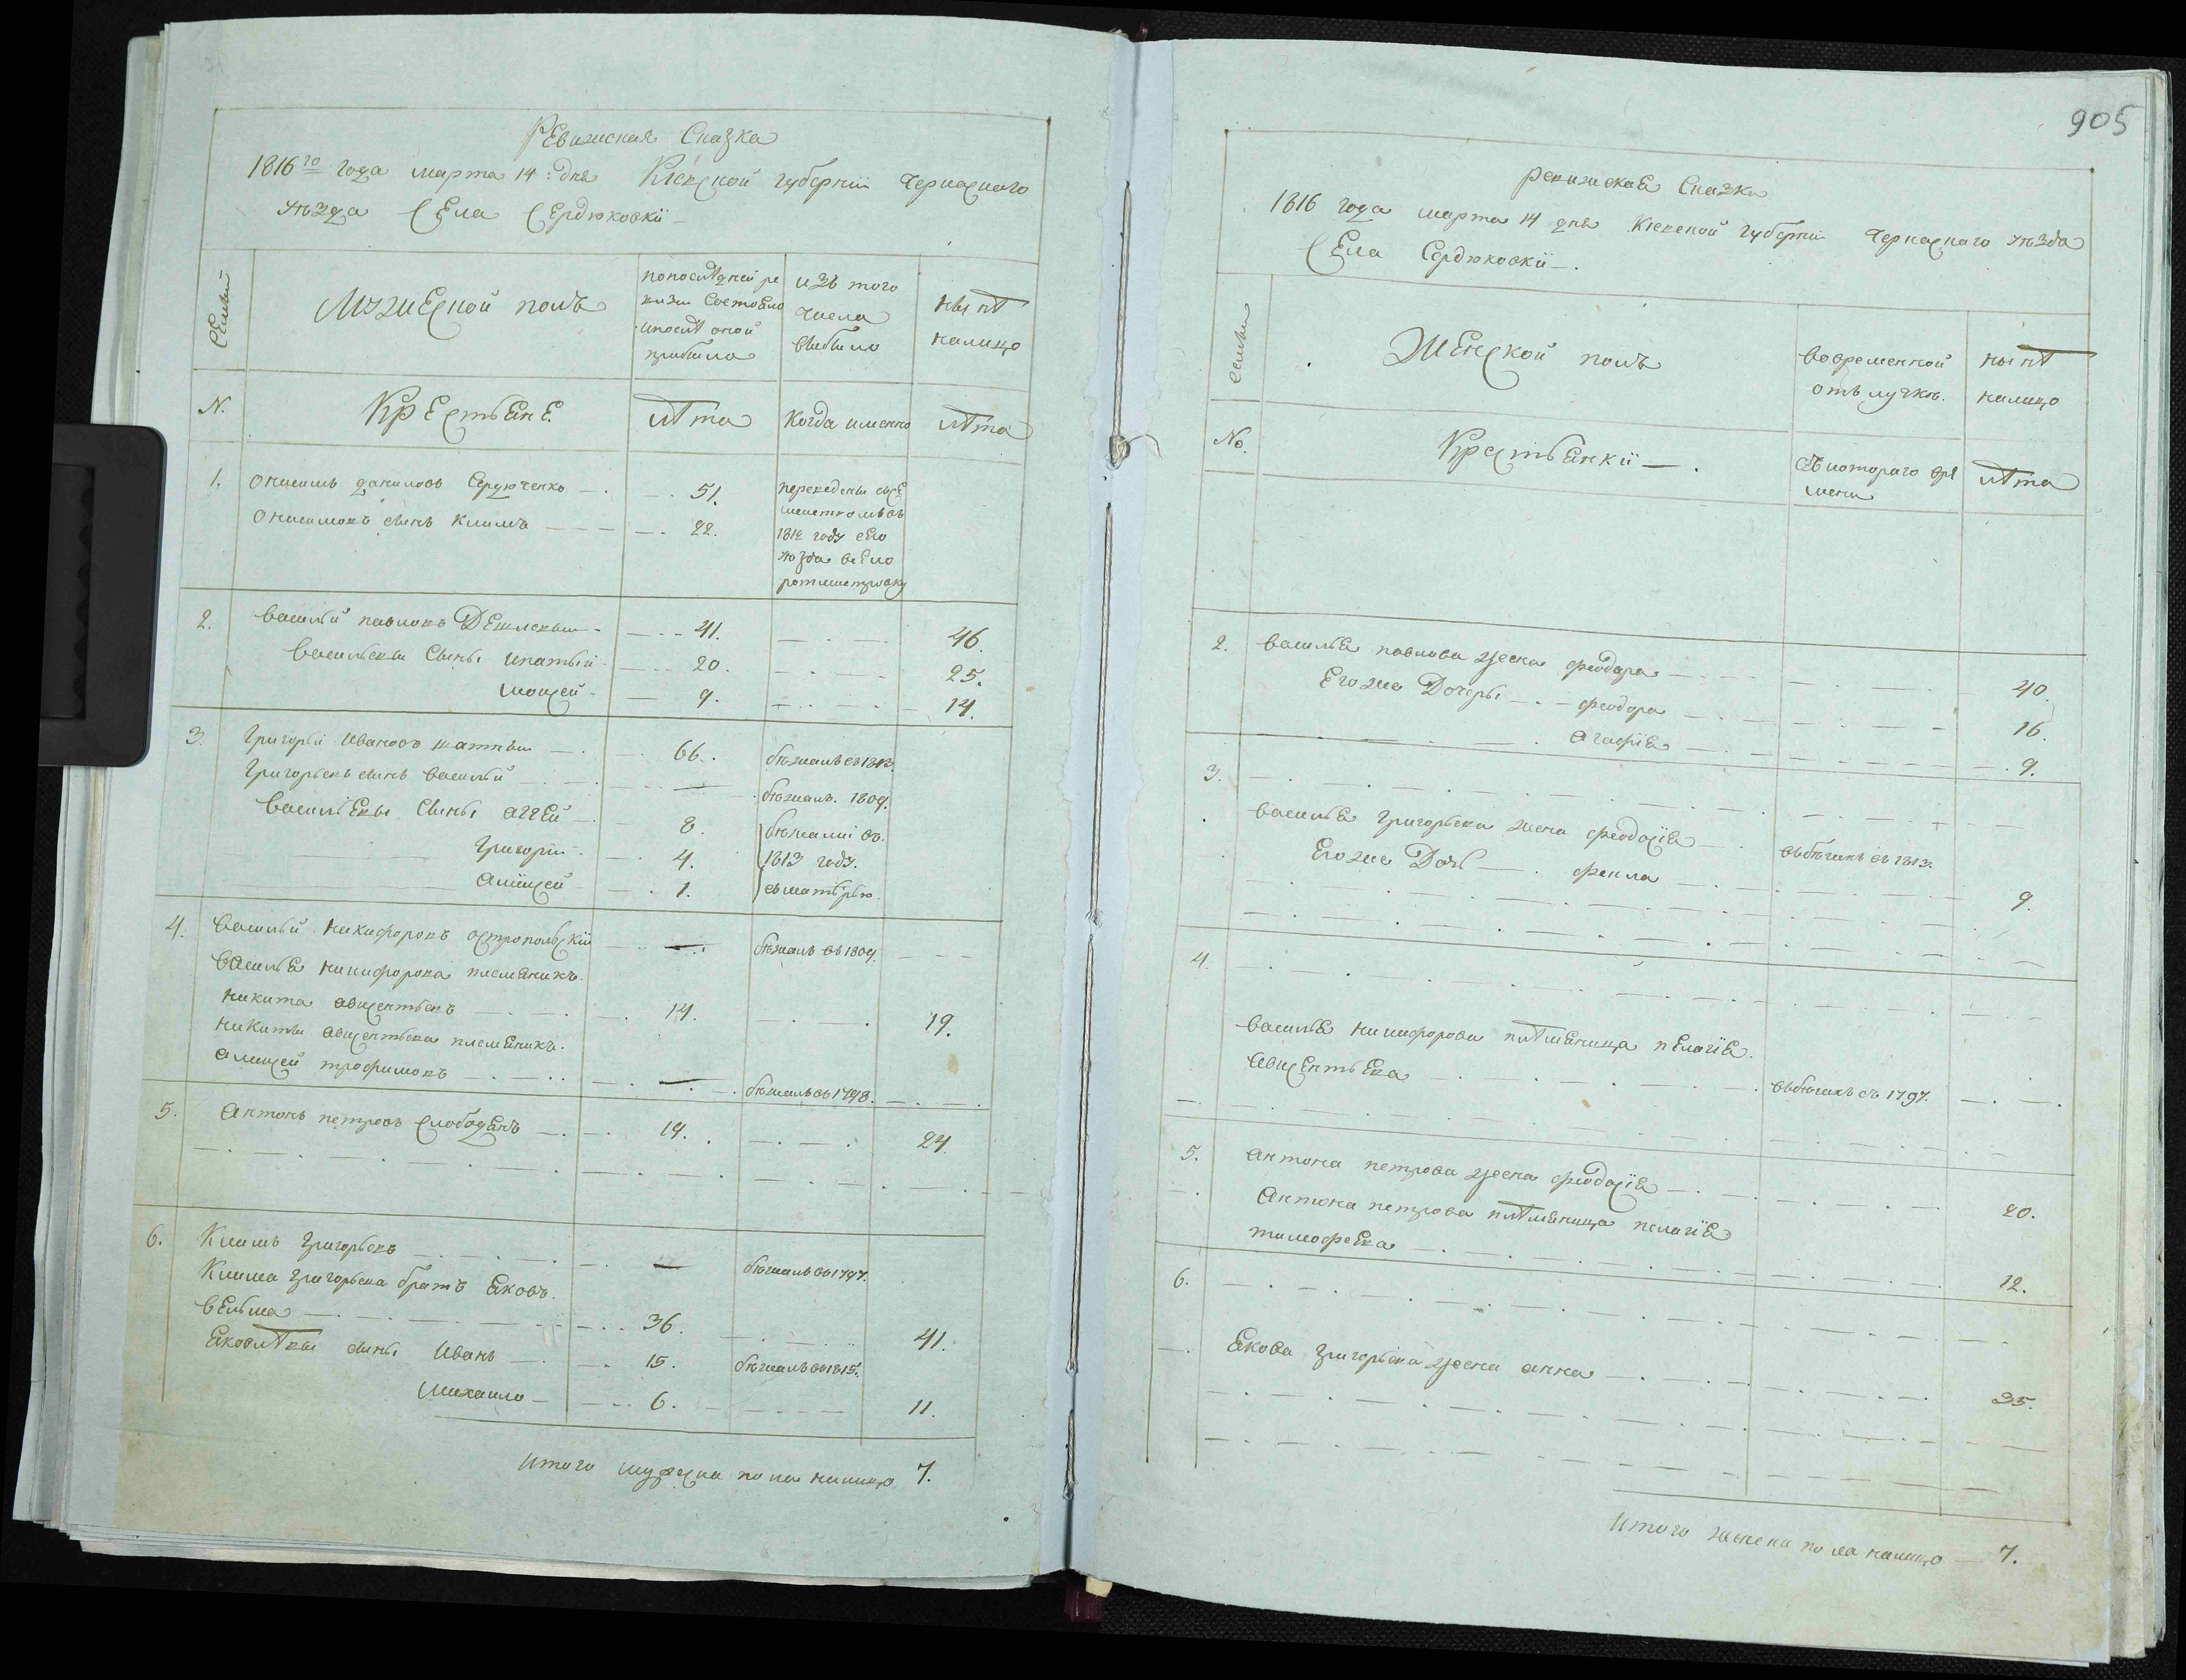 Ревижская Сказка
1816го года марта 14: дня Кіевской губерніи Черкаскаго
уѣзда Села Сердюковкі
Семьи
Мужеской полъ
попослѣдней ре
визіи Состояло
ипослѣ оной
прибыло
изъ того
числа
выбыло
нынѣ
налицо
N.
Крестьяне
лѣта
Когда именно
лѣта
1. Онисимъ даниловъ Сердюченко 51. переведены
Онисимовъ сынъ Климъ 22. 1812 году сего
уѣзда въ село
ротмистровку
2. Василий павловъ 41. 46.
Васильевы Сыны ипатий 20. 25.
Моисей 9. 14.
3. Григорій Ивановъ 66. бѣжалъ въ 1813.
Григорьевъ сынъ Василий бѣжалъ. 1809.
Васильевы Сыны аггей 8. бѣжали въ
Григорій 4. 1813 году.
Аликсей 1. сматерью.
4. Василий Никифоровъ острополскій бѣжалъ въ 1809.
Василья Никифорова племяникъ.
Никита авксентьевъ 14. 19.
Никиты авксентьева племяникъ.
Аликсей трофимовъ бѣжалъ въ 1798.
5. Антонъ петровъ слободянъ 19. 24.
6. Климъ Григорьевъ бѣжалъ въ 1797.
Клима Григорьева братъ Яковъ.
Вельма 36. 41.
Яковлѣвы сыны Иванъ 15. бѣжалъ въ 1815.
Михаило 6. 11.
Итого мужеска пола налицо 7.
905
ревижская Сказка
1816 года марта 14 дня Кіевской губерніи Черкаскаго уѣзда
Села Сердюковкі
семьи
Женской полъ
вовременной
отълучкѣ.
нынѣ
налицо
No.
Крестьянкі
Съкотораго вре
мени
лѣта
2. Василья павлова жена феодора 40.
Егоже Дочеры феодора 16.
агафія 9.
3.
Василья Григорьева жена феодосія въбѣгахъ съ 1813.
Егоже Дочь фекла 9.
4.
Василья Никифорова плѣмяница пелагія.
авксентьева въбѣгахъ съ 1797.
5. Антона петрова жена феодосія 20.
Антона петрова плѣмяница пелагія
тимофеева 12.
6.
Якова Григорьева жена анна 35.
Итого женска пола налицо 7.